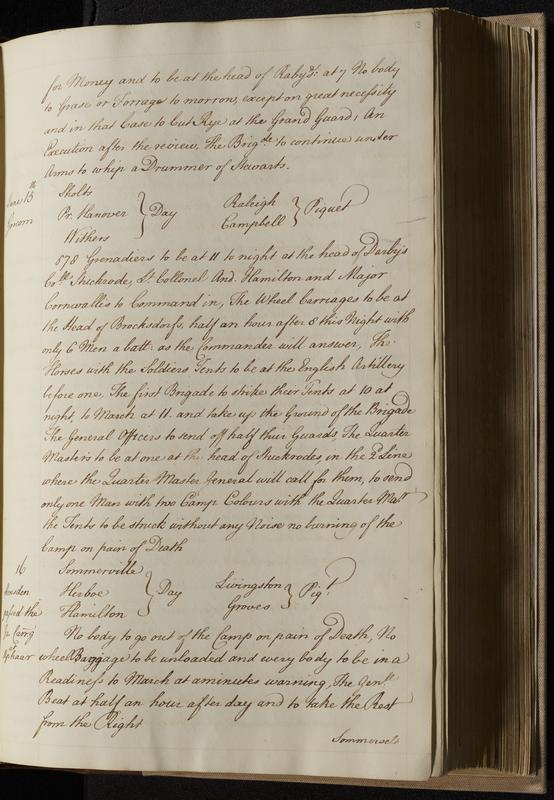 for Money and to be at the head of Raby's: at 7 No body
to Grase or Forrage to morrow, except on great necessity
and in that Case to Cut Rye at the Grand Guard, An
Execution after the review, The Brigde to continue under
Arms to whip a Drummer of Stewarts.
June 15th
Sholts
Pr. Hanover } Day
Withers
Raleigh
Campbell } Piquet
578 Grenadiers to be at 11 to night at the head of Darby's
Collo Stuckrode, Lt. Collonel And. Hamilton and Major
Cornwallis to Command in, The Wheel Carriages to be at
the Head of Brocksdorfs, half an hour after 8 this Night with
only 6 Men a batt: as the Commander will answer, The
Horses with the Soldiers Tents to be at the English Artillery
before one, The first Brigade to strike their Tents at 10 at
night, to March at 11. and take up the Ground of the Brigade
The General Officers to send off half their Guards, The Quarter
Masters to be at one at the head of Stuckrodes, in the 2d Line
where the Quarter Master General will call for them, to send
only one Man with two Camp Colours with the Quarter Mastr
the Tents to be struck without any Noise no burning of the
Camp on pain of Death
16
Sommerville
Herboe } Day
Hamilton
Livingston
Groves } Piqt
passed the
No body to go out of the Camp on pain of Death, No
wheel Baggage to be unloaded and every body to be in a
Readiness to March at a minutes warning, The Genll
Beat at half an hour after day and to take the Rest
from the Right
Sommersets